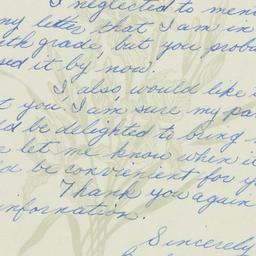 I neglected to men
my letter that I am in
th grade, but you prob
sed it by now.
I also would like
t you. I am sure my pa
ld be delighted to bring
let me know when i
d be convenient for y
Thank you again
information.
Sincerely